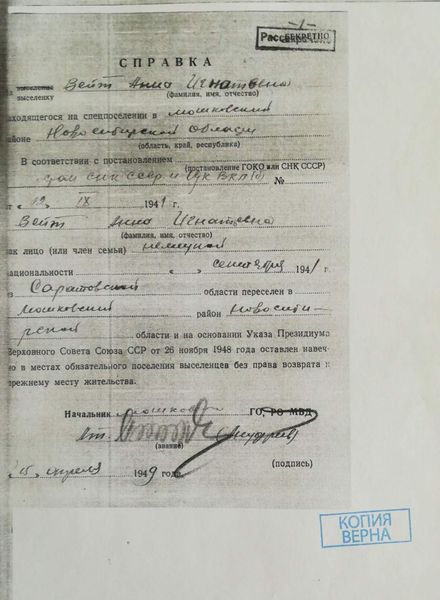 -1-
Рассекречено
СЕКРЕТНО
СПРАВКА
на выселенца
выселенку Вейт Анна Игнатьевна
(фамилия, имя, отчество)
находящегося на спецпоселении в Мошковский
районе Новосибирской области
(область, край, республика)
В соответствии с постановлением
(постановление ГОКО или СНК СССР)
СНК СССР и ЦК ВКП(б) №
от „12 IX 1941 г.
Вейт Анна Игнатьевна
(фамилия, имя, отчество)
как лицо (или член семьи) немецкой
национальности „ “ сентября 1941 г.
из Саратовской области переселен в
Мошковский район Новосиби-
рской области и на основании Указа Президиума
Верховного Совета Союза ССР от 26 ноября 1948 года оставлен навеч-
но в местах обязательного поселения выселенцев без права возврата к
прежнему месту жительства.
Начальник Мошков ГО, РО МВД
(звание)
(подпись)
апреля 1949 года
КОПИЯ
ВЕРНА